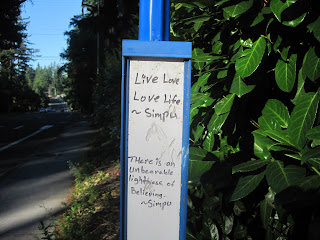 Live Love
Love Life
~ Simpu
There is an
unbearable
lighthouse of
Believing.
~Simpu